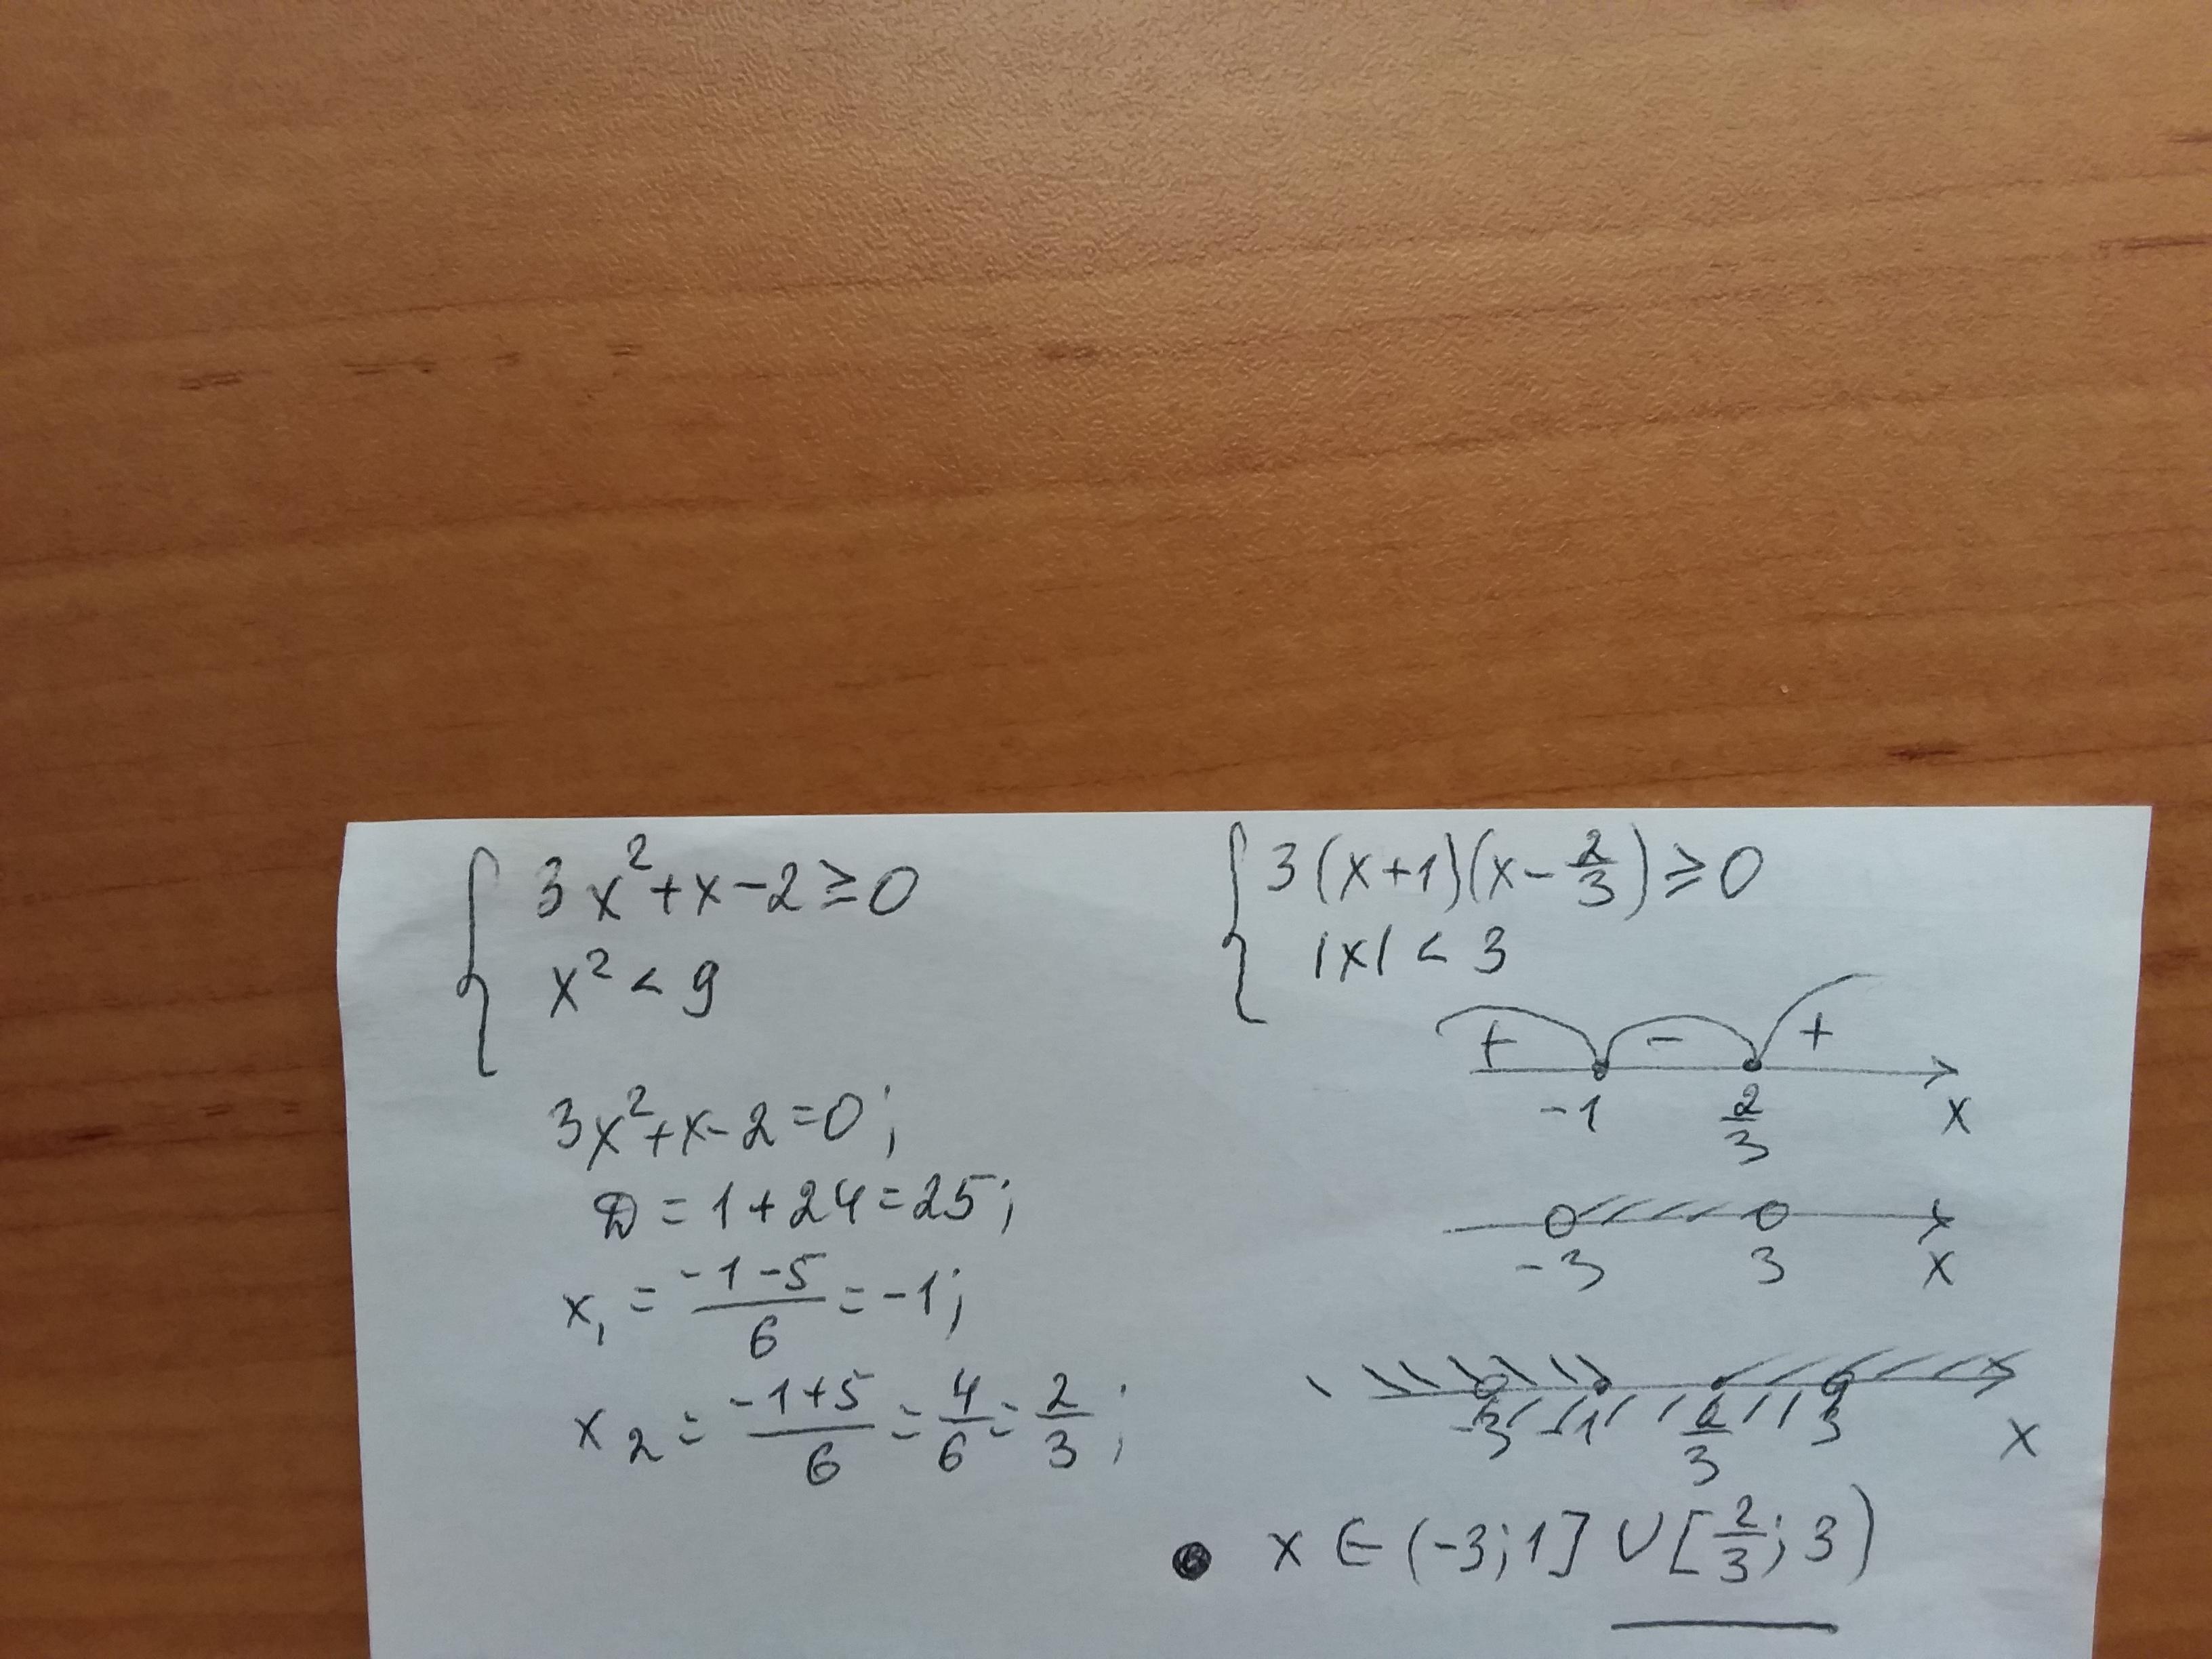 3x²+x-2≥0
x²<9
3x²+x-2=0;
D=1+24=25;
x₁=(-1-5)/6=-1;
x₂=(-1+5)/6=4/6=2/3;
3(x+1)(x-2/3)≥0
|x|<3
+ - +
-1 2/3 x
-3 3 x
-3 -1 2/3 3 x
x∈(-3;1]∪[2/3;3)